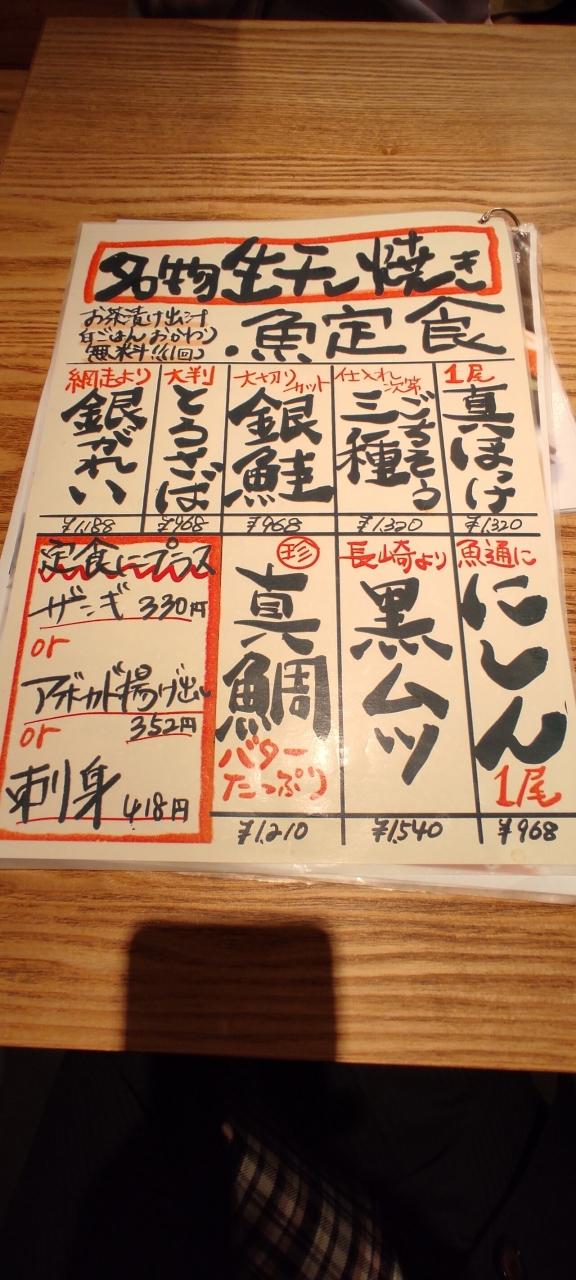 名物生干し焼き
お茶漬け出汁
白ごはんおかわり
無料!!(1回)
魚定食
1尾
真ほっけ
¥1320
仕入れ次第
ごちそう
三種
¥1,320
大切りカット
銀鮭
¥968
大判
とろさば
¥968
網走より
銀がれい
¥1,188
魚通に
にしん
1尾
¥968
長崎より
黒ムツ
¥1,540
珍
真鯛
バター
たっぷり
¥1,210
定食にプラス
ザンギ 330円
or
アボカド揚げ出し
352円
or
刺身 418円